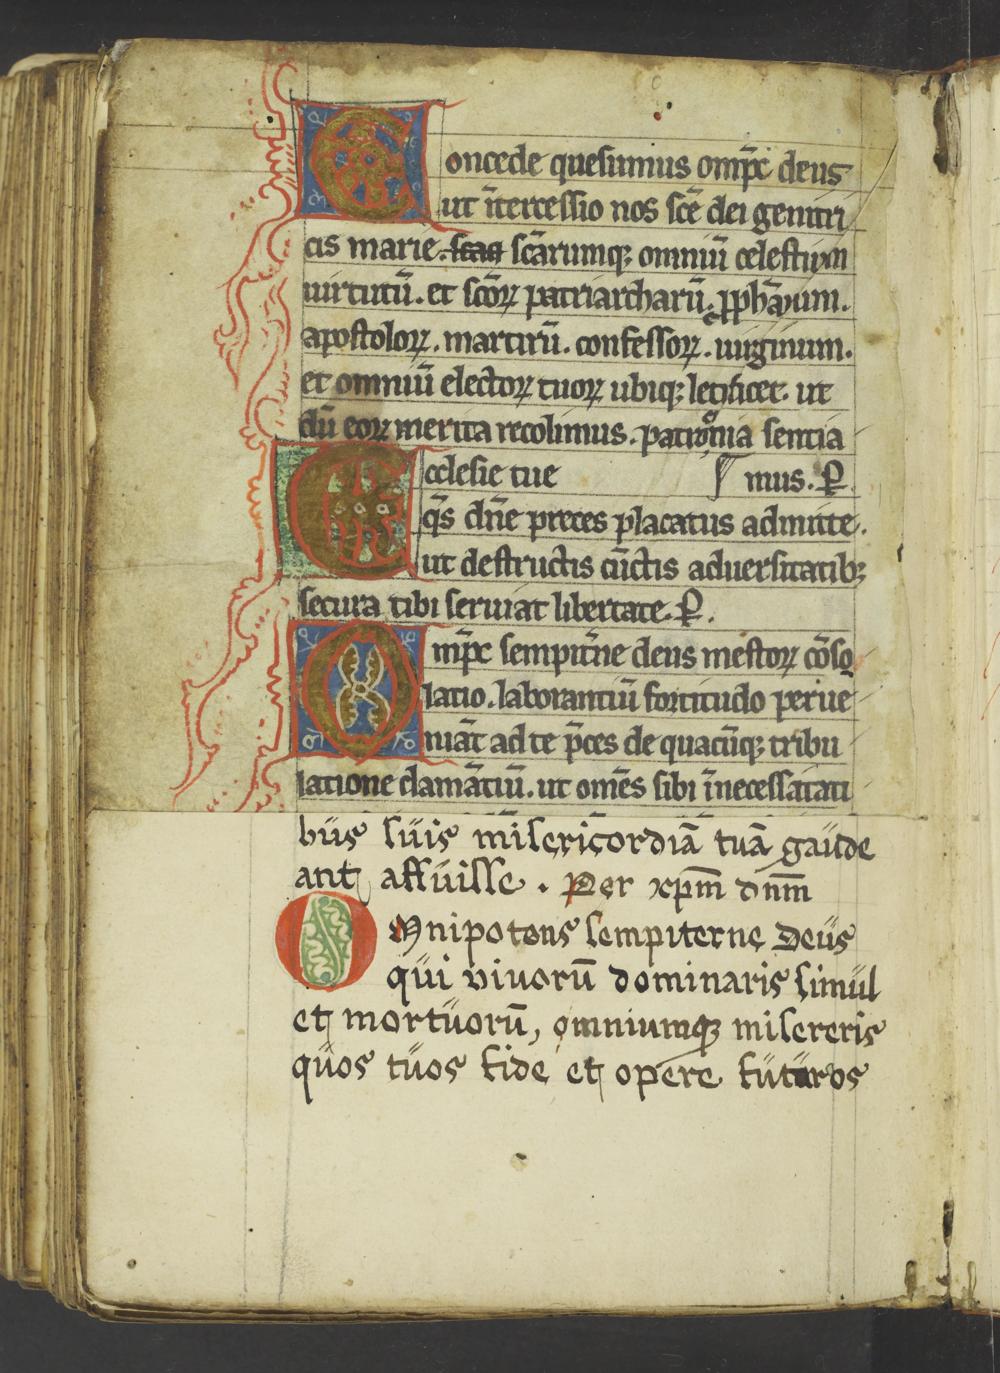 Concede quesumus omp̄c deus
ut īt̄ercessio nos sc̄e dei genitri
cis marie. scaꝝ sc̄arumqꝫ omniū celestium
uirtutū. et sc̄oꝝ patriarcharū. ꝓph̄arum.
apostoloꝝ. martirū. confessoꝝ. uirginum.
et omniū electoꝝ tuoꝝ ubiqꝫ letificet. ut
dū eoꝝ merita recolimus. patrocinia sentia
Ecclesie tue mus. P̄.
q̄s dn̄e preces placatus admitte.
ut destructis cūctis aduersitatibꝫ
secura tibi seruiat libertate. P̄.
Omp̄c sempit̄ne deus mestoꝝ cōso
latio. laborantiū fortitudo perue
niāt ad te p̄ces de quacūqꝫ tribu
latione clamātiū. ut om̄es sibi ī necessitati
bus suis misericordiā tuā gaude
ant affuisse. Per xp̄m dn̄m
Omnipotens sempiterne Deus
qui vivorū dominaris simul
et mortuorū, omniumqꝫ misereris
quos tuos fide et opere futuros